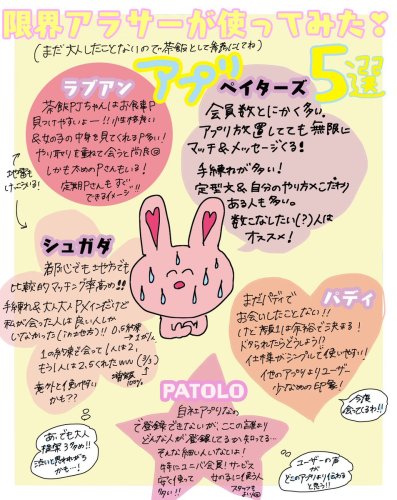 限界アラサーが使ってみた
(まだ大人したことないので茶飯として参考にしてね)
アプリ5選
ラブアン
茶飯PJちゃんはお食事P
見つけやすいよー!!小性格良い
&女の子の中身を見てくれるP多い!
やり取りを重ねて会うと尚良◎
しかも太めのPさんもいる!
定期Pさんもすぐ
できるイメージ!!
↑地雷も
けっこういる!
ペイターズ
会員数とにかく多い。
アプリ放置してても無限に
マッチ&メッセージくる!
手練れが多い!
定型文&自分のやり方にこだわり
ある人も多い。
数こなしたい(?)人は
オススメ!
シュガダ
都心でも地方でも
比較的マッチング率高め!!
手練れ&大人大人PメインだけどP
私が会った人は良い人しか
いなかった
1の約束で会って1人は2、
もう1人は2.5くれたww
意外と使いやすい
かも??
あ、でも大人
提案多め!!
泣いた
かもー!
パディ
まだパディで
お会いしたことない!!
けど顔1は余裕で決まる!
ドタられたらどうしよう?
仕様がシンプルで使いやすい!
他のアプリよりユーザー
少なめの印象!
今度
会ってくるわ!!
ユーザーの声が
どこのアプリより伝わる
と思う!!
PATOLO
自社アプリなの
で登録できないが、ここの誰より
どんな人が登録してるか知ってる…
そんな細しい人いないよ!
特にユニバ会員!サービス
安く使って
多い!
女の子に使う人
スタッフも